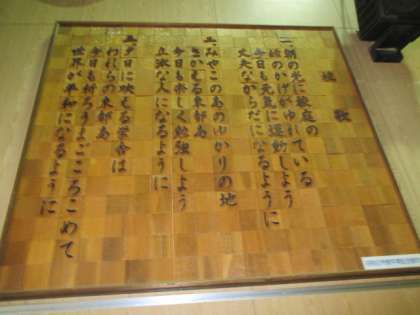 校歌
一 朝の光に校庭の
松のかげがゆれている
今日も元気に運動しよう
丈夫なからだになるように
二 みやこのあのゆかりの地
さかえる東郷
今日も楽しく勉強しよう
立派な人になるように
三 夕日に映える学舎は
われらの東郷
今日も祈ろうまごころこめて
世界が平和になるように